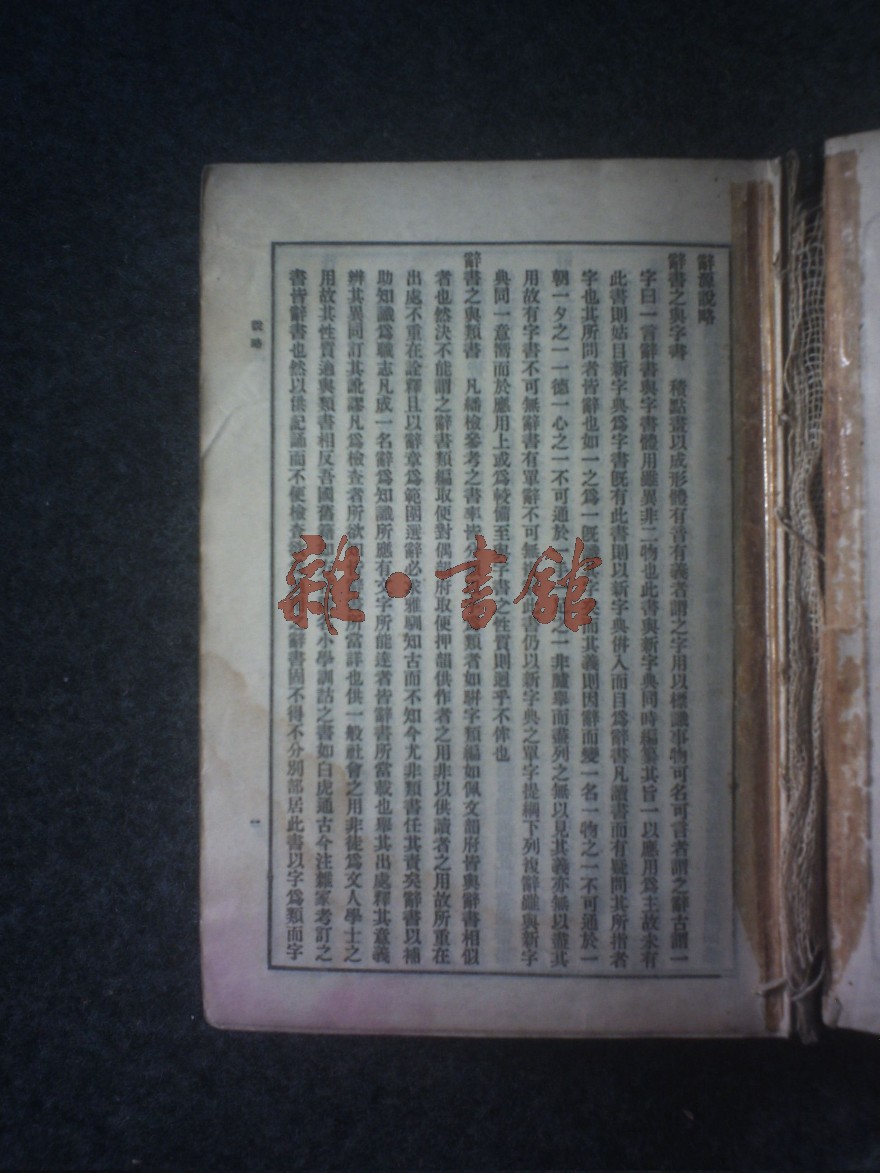 辭源說略
辭書之與字書 積點畫以成形體有音有義者謂之字用以標識事物可名可言者謂之辭古謂一
字曰一言辭書與字書體用雖異非二物也此書與新字典同時編纂其旨一以應用為主故未有
此書則姑目新字典為字書既有此書則以新字典併入而目為辭書凡讀書而有疑問其所指者
字也其所問者皆辭也如一之為一旣 而其義則因辭而變一名一物之一不可通於一
朝一夕之一一德一心之一不可通於一 之一非臚舉而盡列之無以見其義亦無以盡其
用故有字書不可無辭書有單辭不可無 此書仍以新字典之單字提綱下列複辭雖與新字
典同一意嚮而於應用上或為較備至 書 性質則迥乎不侔也
辭書之與類書 凡繙檢參考之書率皆分 類者如駢字類編如佩文韻府皆與辭書相似
者也然決不能謂之辭書類編取便對偶 府取便押韻供作者之用非以供讀者之用故所重在
出處不重在詮釋且以辭章為範圍選辭必 雅馴知古而不知今尤非類書任其責矣辭書以補
助知識為職志凡成一名辭為知識所應有文字所能達者皆辭書所當載也舉其出處釋其意義
辨其異同訂其訛謬凡為檢查者所欲 當詳也供一般社會之用非徒為文人學士之
用故其性質適與類書相反吾國舊籍如 小學訓詁之書如白虎通古今注雜家考訂之
書皆辭書也然以供記誦而不便檢查 之辭書固不得不分別部居此書以字為類而字
說略
一
雜·書館